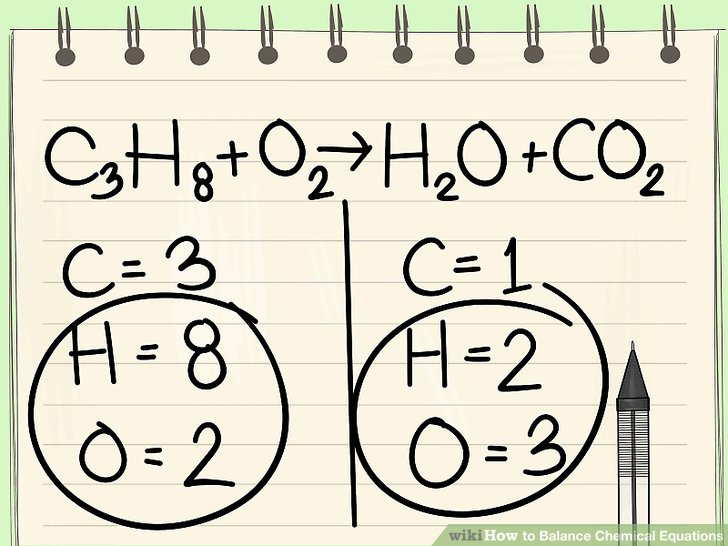 C₃H₈+O₂→H₂O+CO₂
C=3
H=8
O=2
C=1
H=2
O=3
wikiHow to Balance Chemical Equations